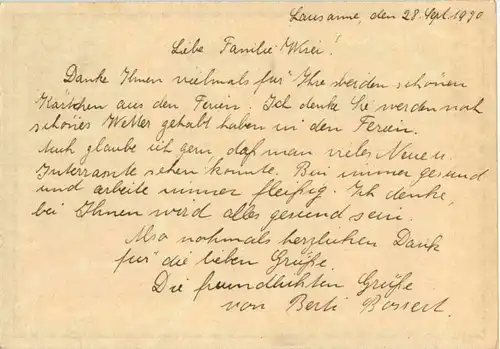 Lausanne, den 28. Sept. 1990
Liebe Familie
Danke Ihnen vielmals für Ihre beiden schönen
Kärtchen aus den Ferien. Ich denke Sie werden noch
schönes Wetter gehabt haben in den Ferien.
Auch glaube ich gern, daß man vieles Neue u.
Interessante sehen konnte. Bin immer gesund
und arbeite immer fleißig. Ich denke,
bei Ihnen wird alles gesund sein.
Also nochmals herzlichen Dank
für die lieben Grüße.
Die freundlichsten Grüße
von Berti Bossert.